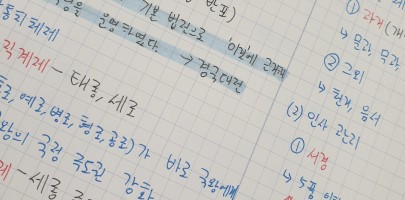 기본 법전으로
반포)
이정에 근거해
을 운영하였다. → 경국대전
통치체제
직계제 - 태종, 세조
예조, 병조, 형조, 공조)가 바로 국왕에게
왕의 국정 주도권 강화
제 - 세종
① 과거
↳ 문과, 무과,
② 그외
↳ 천거, 음서
(2) 인사 관리
① 서경
↳ 5품 이